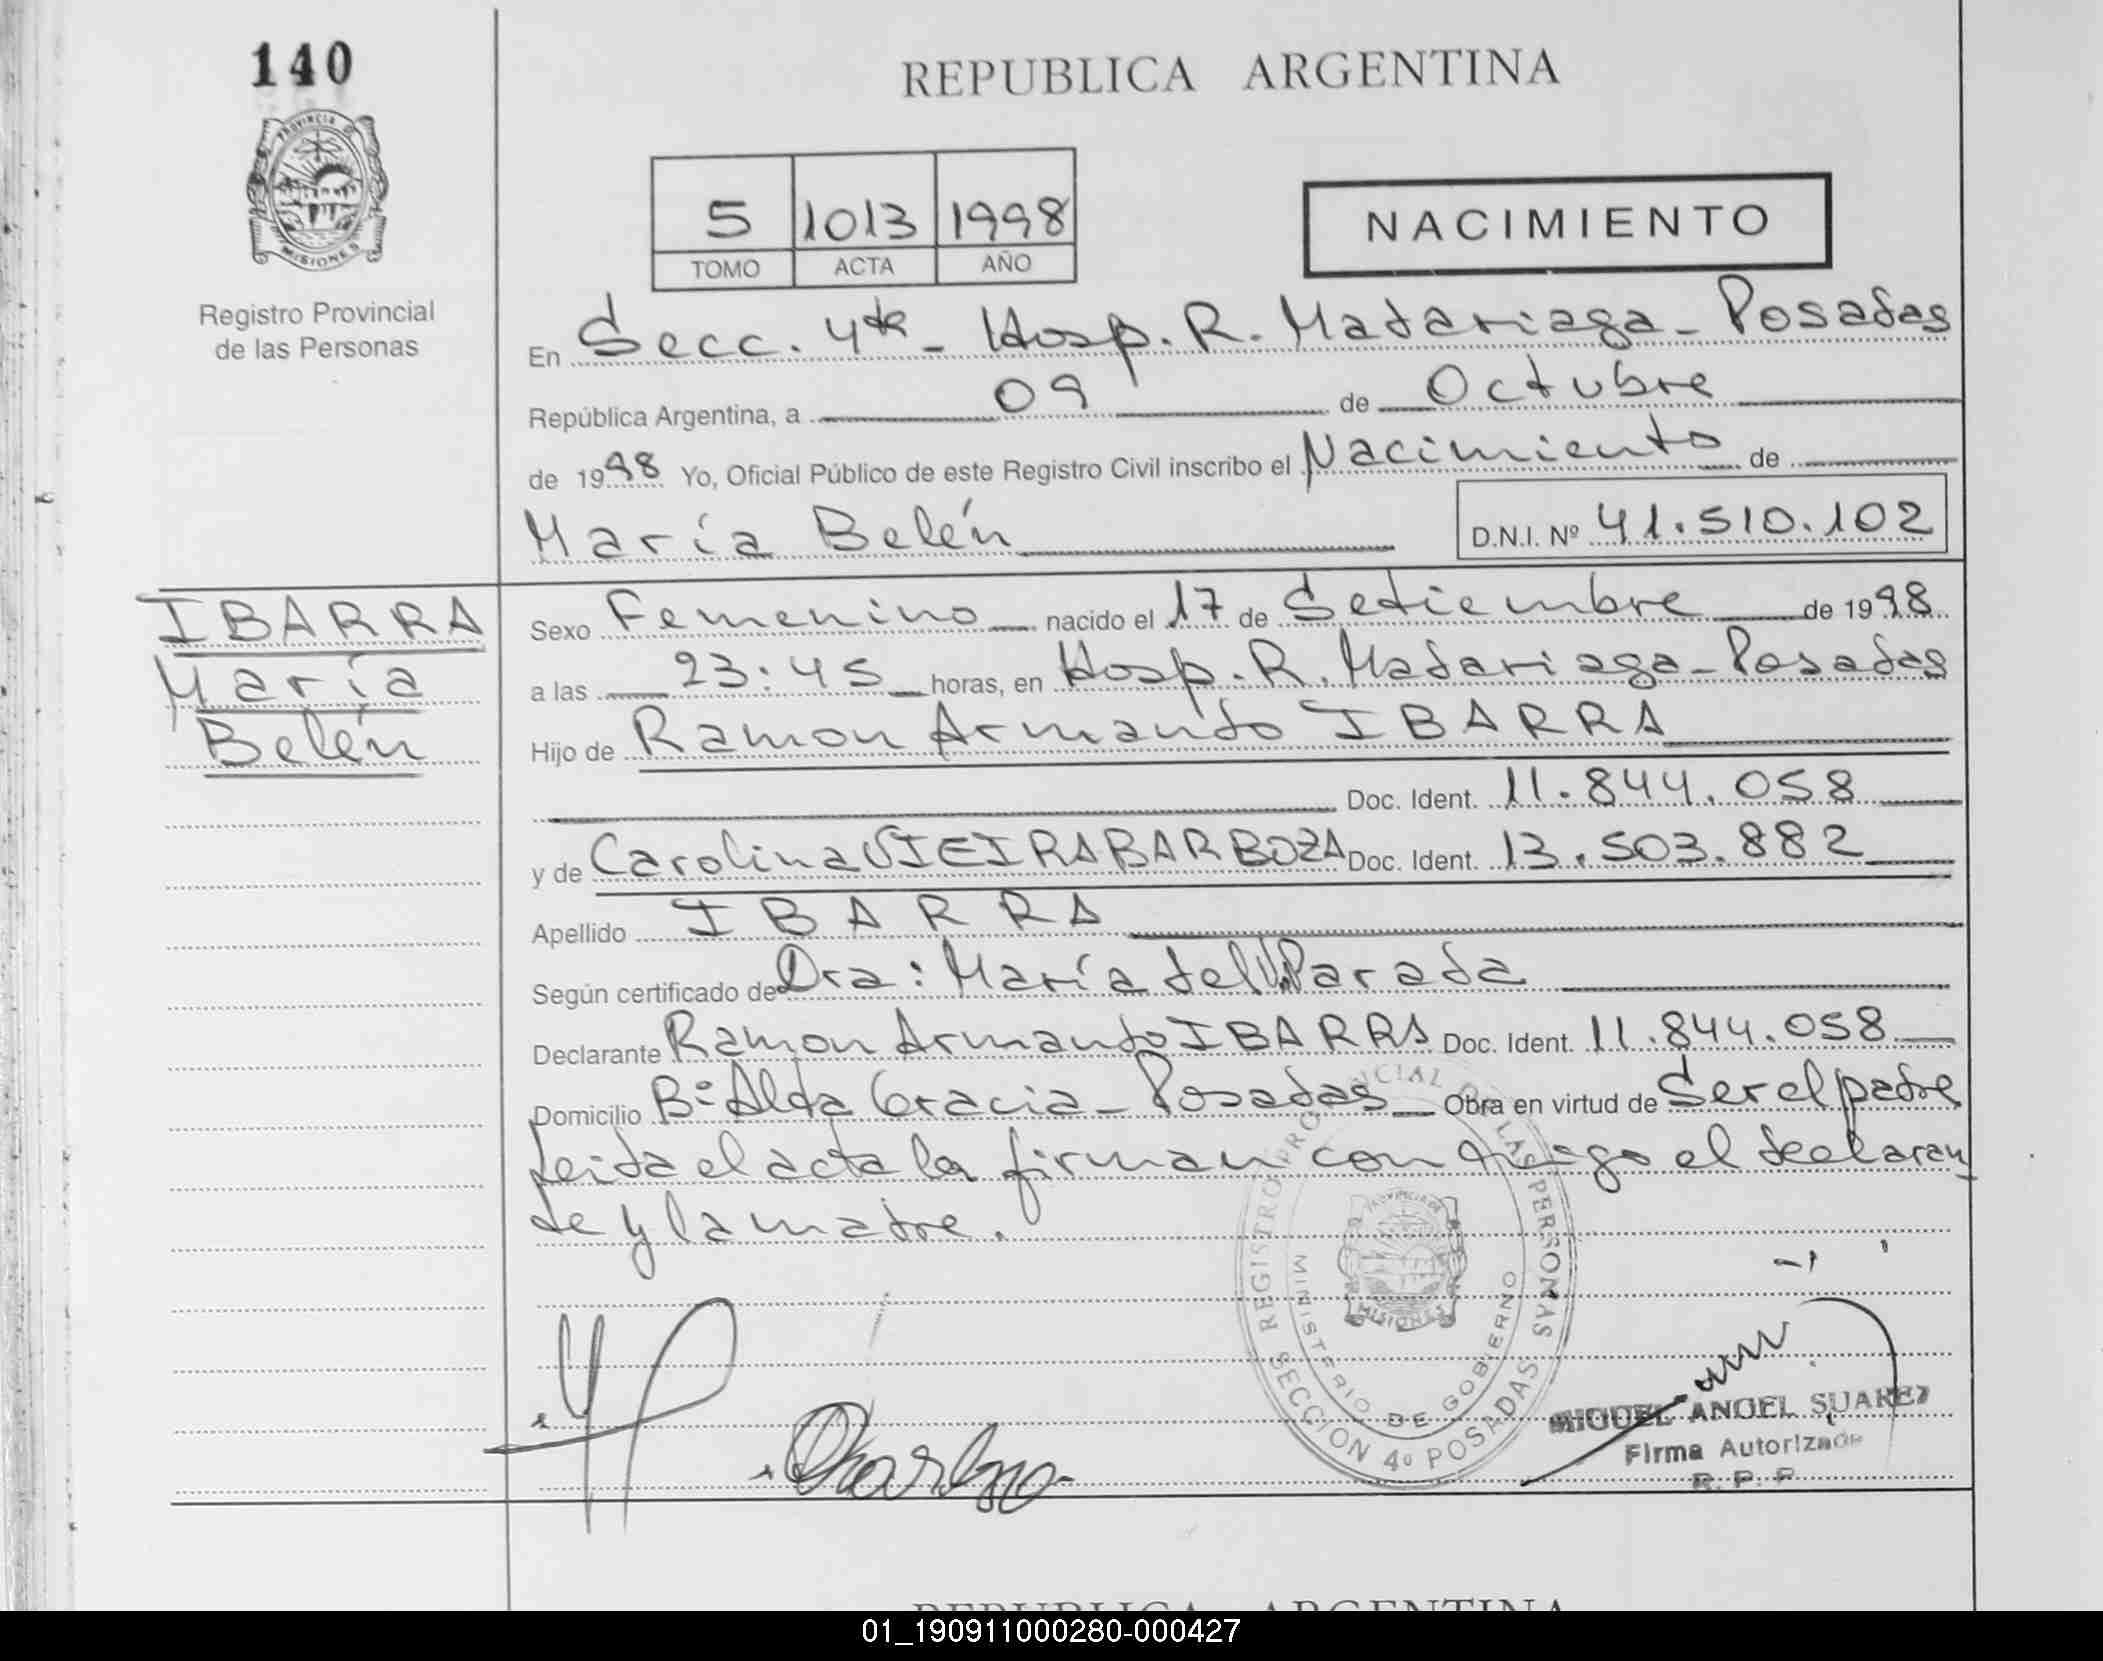 140
REPUBLICA ARGENTINA
PROVINCIA DE
MISIONES
Registro Provincial
de las Personas
5 1013 1998
TOMO ACTA AÑO
NACIMIENTO
En Secc. 4ta - Hosp. R. Madariaga - Posadas
República Argentina, a 09 de Octubre
de 1998 Yo, Oficial Público de este Registro Civil inscribo el Nacimiento de
María Belén D.N.I. Nº 41.510.102
IBARRA
María
Belén
Sexo Femenino nacido el 17 de Setiembre de 1998
a las 23:45 horas, en Hosp. R. Madariaga - Posadas
Hijo de Ramon Armando IBARRA
Doc. Ident. 11.844.058
y de Carolina VIEIRA BARBOZA Doc. Ident. 13.503.882
Apellido IBARRA
Según certificado de Dra: María del V. Parada
Declarante Ramon Armando IBARRA Doc. Ident. 11.844.058
Domicilio Bº Alta Gracia - Posadas Obra en virtud de Ser el padre
Leida el acta la firman conmigo el declaran
te y la madre.
REGISTRO PROVINCIAL DE LAS PERSONAS
MINISTERIO DE GOBIERNO
MISIONES
SECCION 4º POSADAS
MIGUEL ANGEL SUAREZ
Firma Autorizada
R. P. P.
REPUBLICA ARGENTINA
01_190911000280-000427